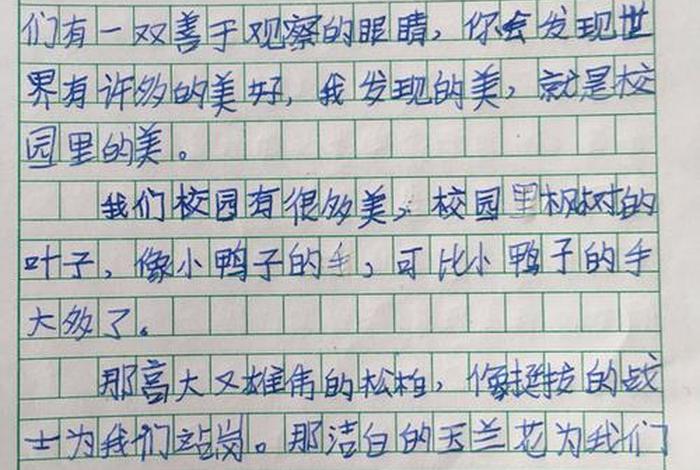 们有一双善于观察的眼睛，你会发现世
界有许多的美好，我发现的美，就是校
园里的美。
我们校园有很多美，校园里枫树的
叶子，像小鸭子的手，可比小鸭子的手
大多了。
那高大又雄伟的松柏，像挺拔的战
士为我们站岗。那洁白的玉兰花为我们